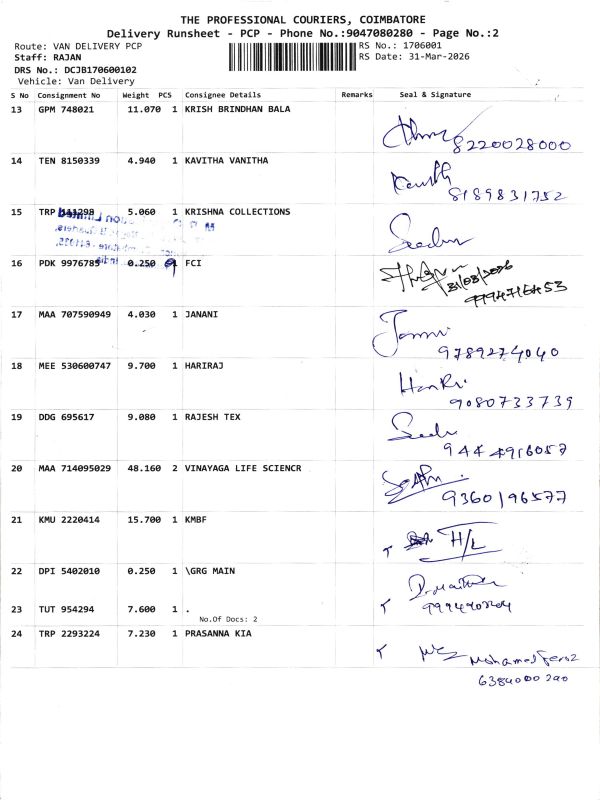 THE PROFESSIONAL COURIERS, COIMBATORE
Delivery Runsheet - PCP - Phone No.:9047080280 - Page No.:2
Route: VAN DELIVERY PCP
RS No.: 1706001
Staff: RAJAN
RS Date: 31-Mar-2026
DRS No.: DCJB170600102
Vehicle: Van Delivery
S No Consignment No Weight PCS Consignee Details Remarks Seal & Signature
13 GPM 748021 11.070 1 KRISH BRINDHAN BALA
8220028000
14 TEN 8150339 4.940 1 KAVITHA VANITHA
8189831752
15 TRP 5.060 1 KRISHNA COLLECTIONS
16 PDK 9976785 0.250 FCI
31/03/2026
9794716453
17 MAA 707590949 4.030 1 JANANI
9789274040
18 MEE 530600747 9.700 1 HARIRAJ
9080733739
19 DDG 695617 9.080 1 RAJESH TEX
9444916057
20 MAA 714095029 48.160 2 VINAYAGA LIFE SCIENCR
9360196577
21 KMU 2220414 15.700 1 KMBF
H/L
22 DPI 5402010 0.250 1 \GRG MAIN
23 TUT 954294 7.600 1 .
No.Of Docs: 2
24 TRP 2293224 7.230 1 PRASANNA KIA
Mohamed Feroz